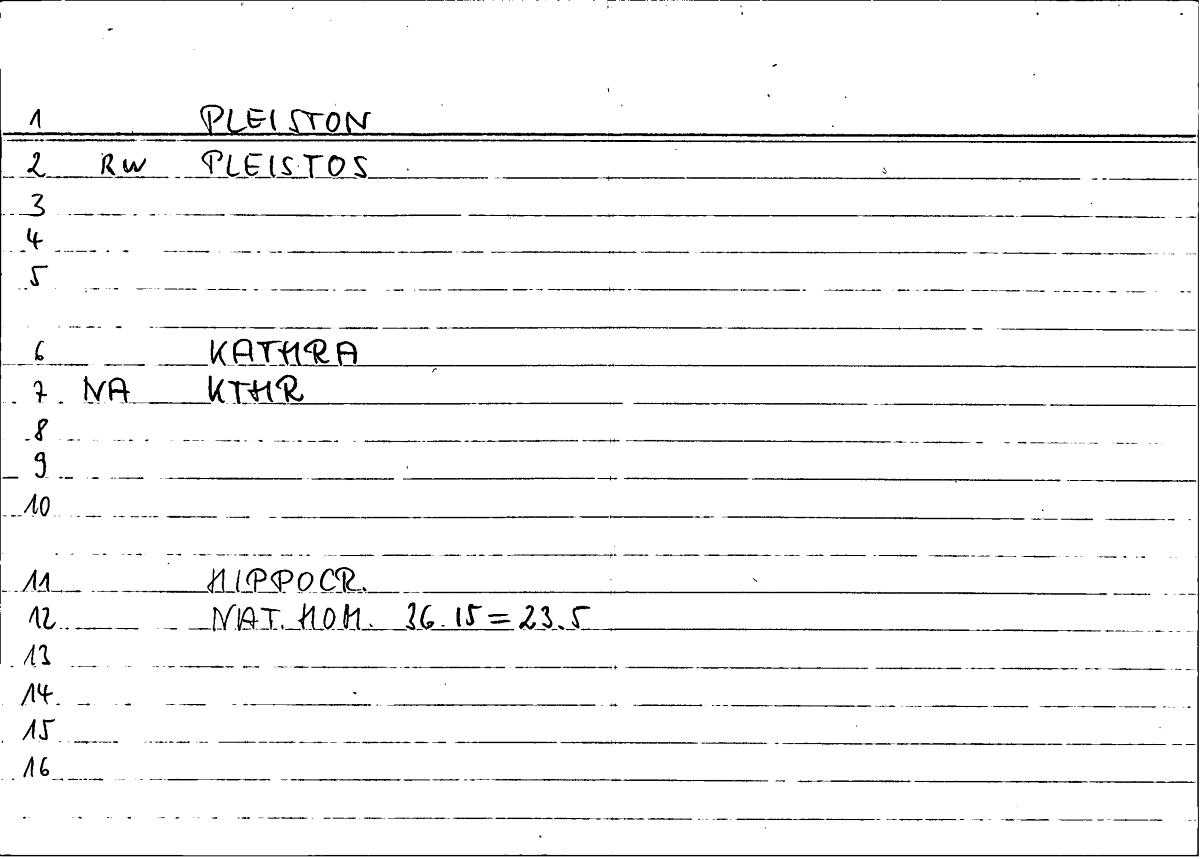 1 PLEISTON
2 RW PLEISTOS
3
4
5
6 KATHRA
7 NA KTHR
8
9
10
11 HIPPOCR.
12 NAT. HOM. 36.15=23.5
13
14
15
16